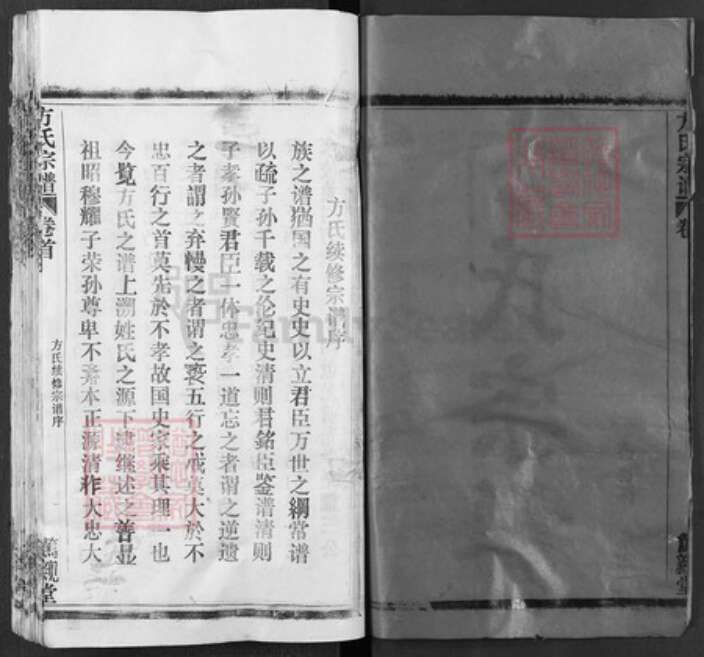 方氏续修宗谱序
族之谱猶国之有史史以立君臣万世之綱常谱
以疏子孙千载之伦纪史清则君銘臣鉴谱清则
子孝孙賢君臣一体忠孝一道忘之者谓之逆遗
之者謂之弃慢之者谓之亵五行之戒莫大於不
忠百行之首莫先於不孝故国史家乘其理一也
今覧方氏之谱上溯姓氏之源下隶继述之善显
祖昭穆耀子荣孙尊卑不紊本正源清作大忠大
方氏宗譜
卷首
方氏续修宗谱序
篤親堂
方氏宗譜
卷
篤親堂